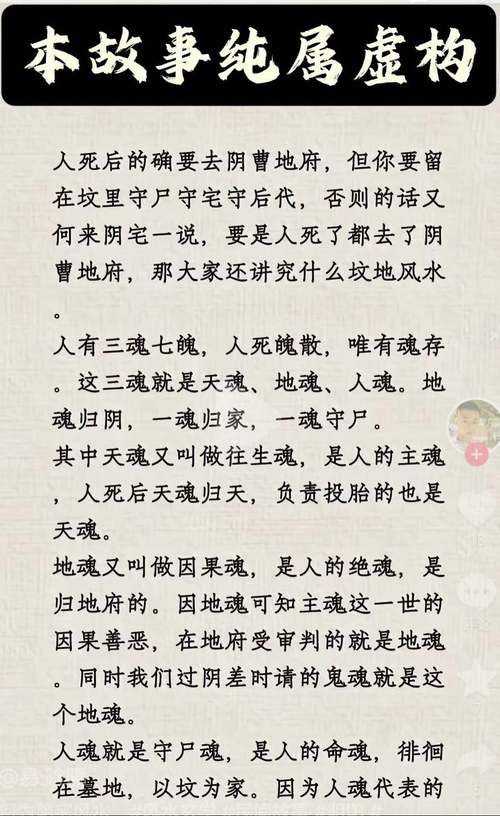 本故事纯属虚构
人死后的确要去阴曹地府，但你要留
在坟里守尸守宅守后代，否则的话又
何来阴宅一说，要是人死了都去了阴
曹地府，那大家还讲究什么坟地风水
。
人有三魂七魄，人死魄散，唯有魂存
。这三魂就是天魂、地魂、人魂。地
魂归阴，一魂归家，一魂守尸。
其中天魂又叫做往生魂，是人的主魂
，人死后天魂归天，负责投胎的也是
天魂。
地魂又叫做因果魂，是人的绝魂，是
归地府的。因地魂可知主魂这一世的
因果善恶，在地府受审判的就是地魂
。同时我们过阴差时请的鬼魂就是这
个地魂。
人魂就是守尸魂，是人的命魂，徘徊
在墓地，以坟为家。因为人魂代表的